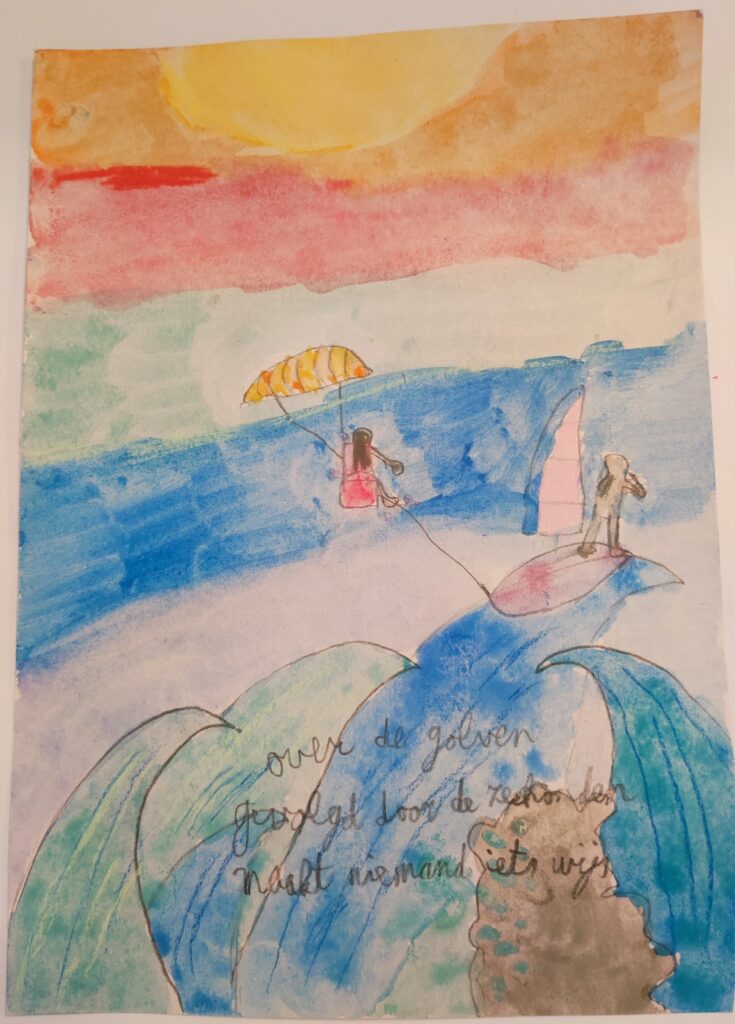 over de golven
gevolgd door de zeehonden
maakt niemand iets wijs